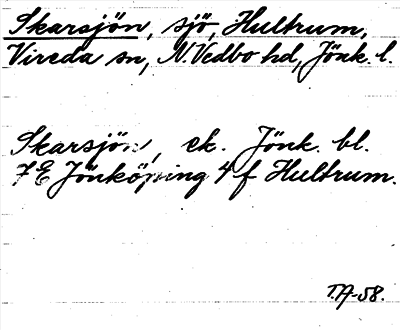 Skarsjön, sjö, Hultrum,
Vireda sn, N. Vedbo hd, Jönk. l.
Skarsjön, ek. Jönk. bl.
7 E Jönköping 4 f Hultrum.
T.A-58.